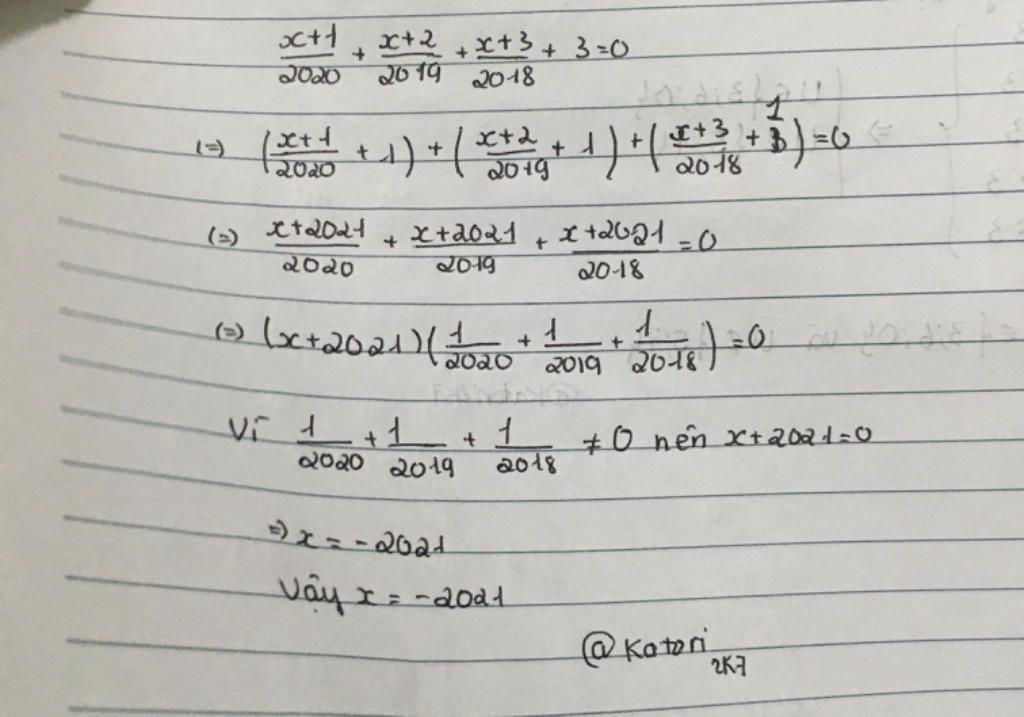 x+1/2020 + x+2/2019 + x+3/2018 + 3 = 0
(=) (x+1/2020 + 1) + (x+2/2019 + 1) + (x+3/2018 + 1) = 0
(=) x+2021/2020 + x+2021/2019 + x+2021/2018 = 0
(=) (x+2021)(1/2020 + 1/2019 + 1/2018) = 0
Vì 1/2020 + 1/2019 + 1/2018 ≠ 0 nên x+2021=0
=) x = -2021
Vậy x = -2021
@Katori
2K7